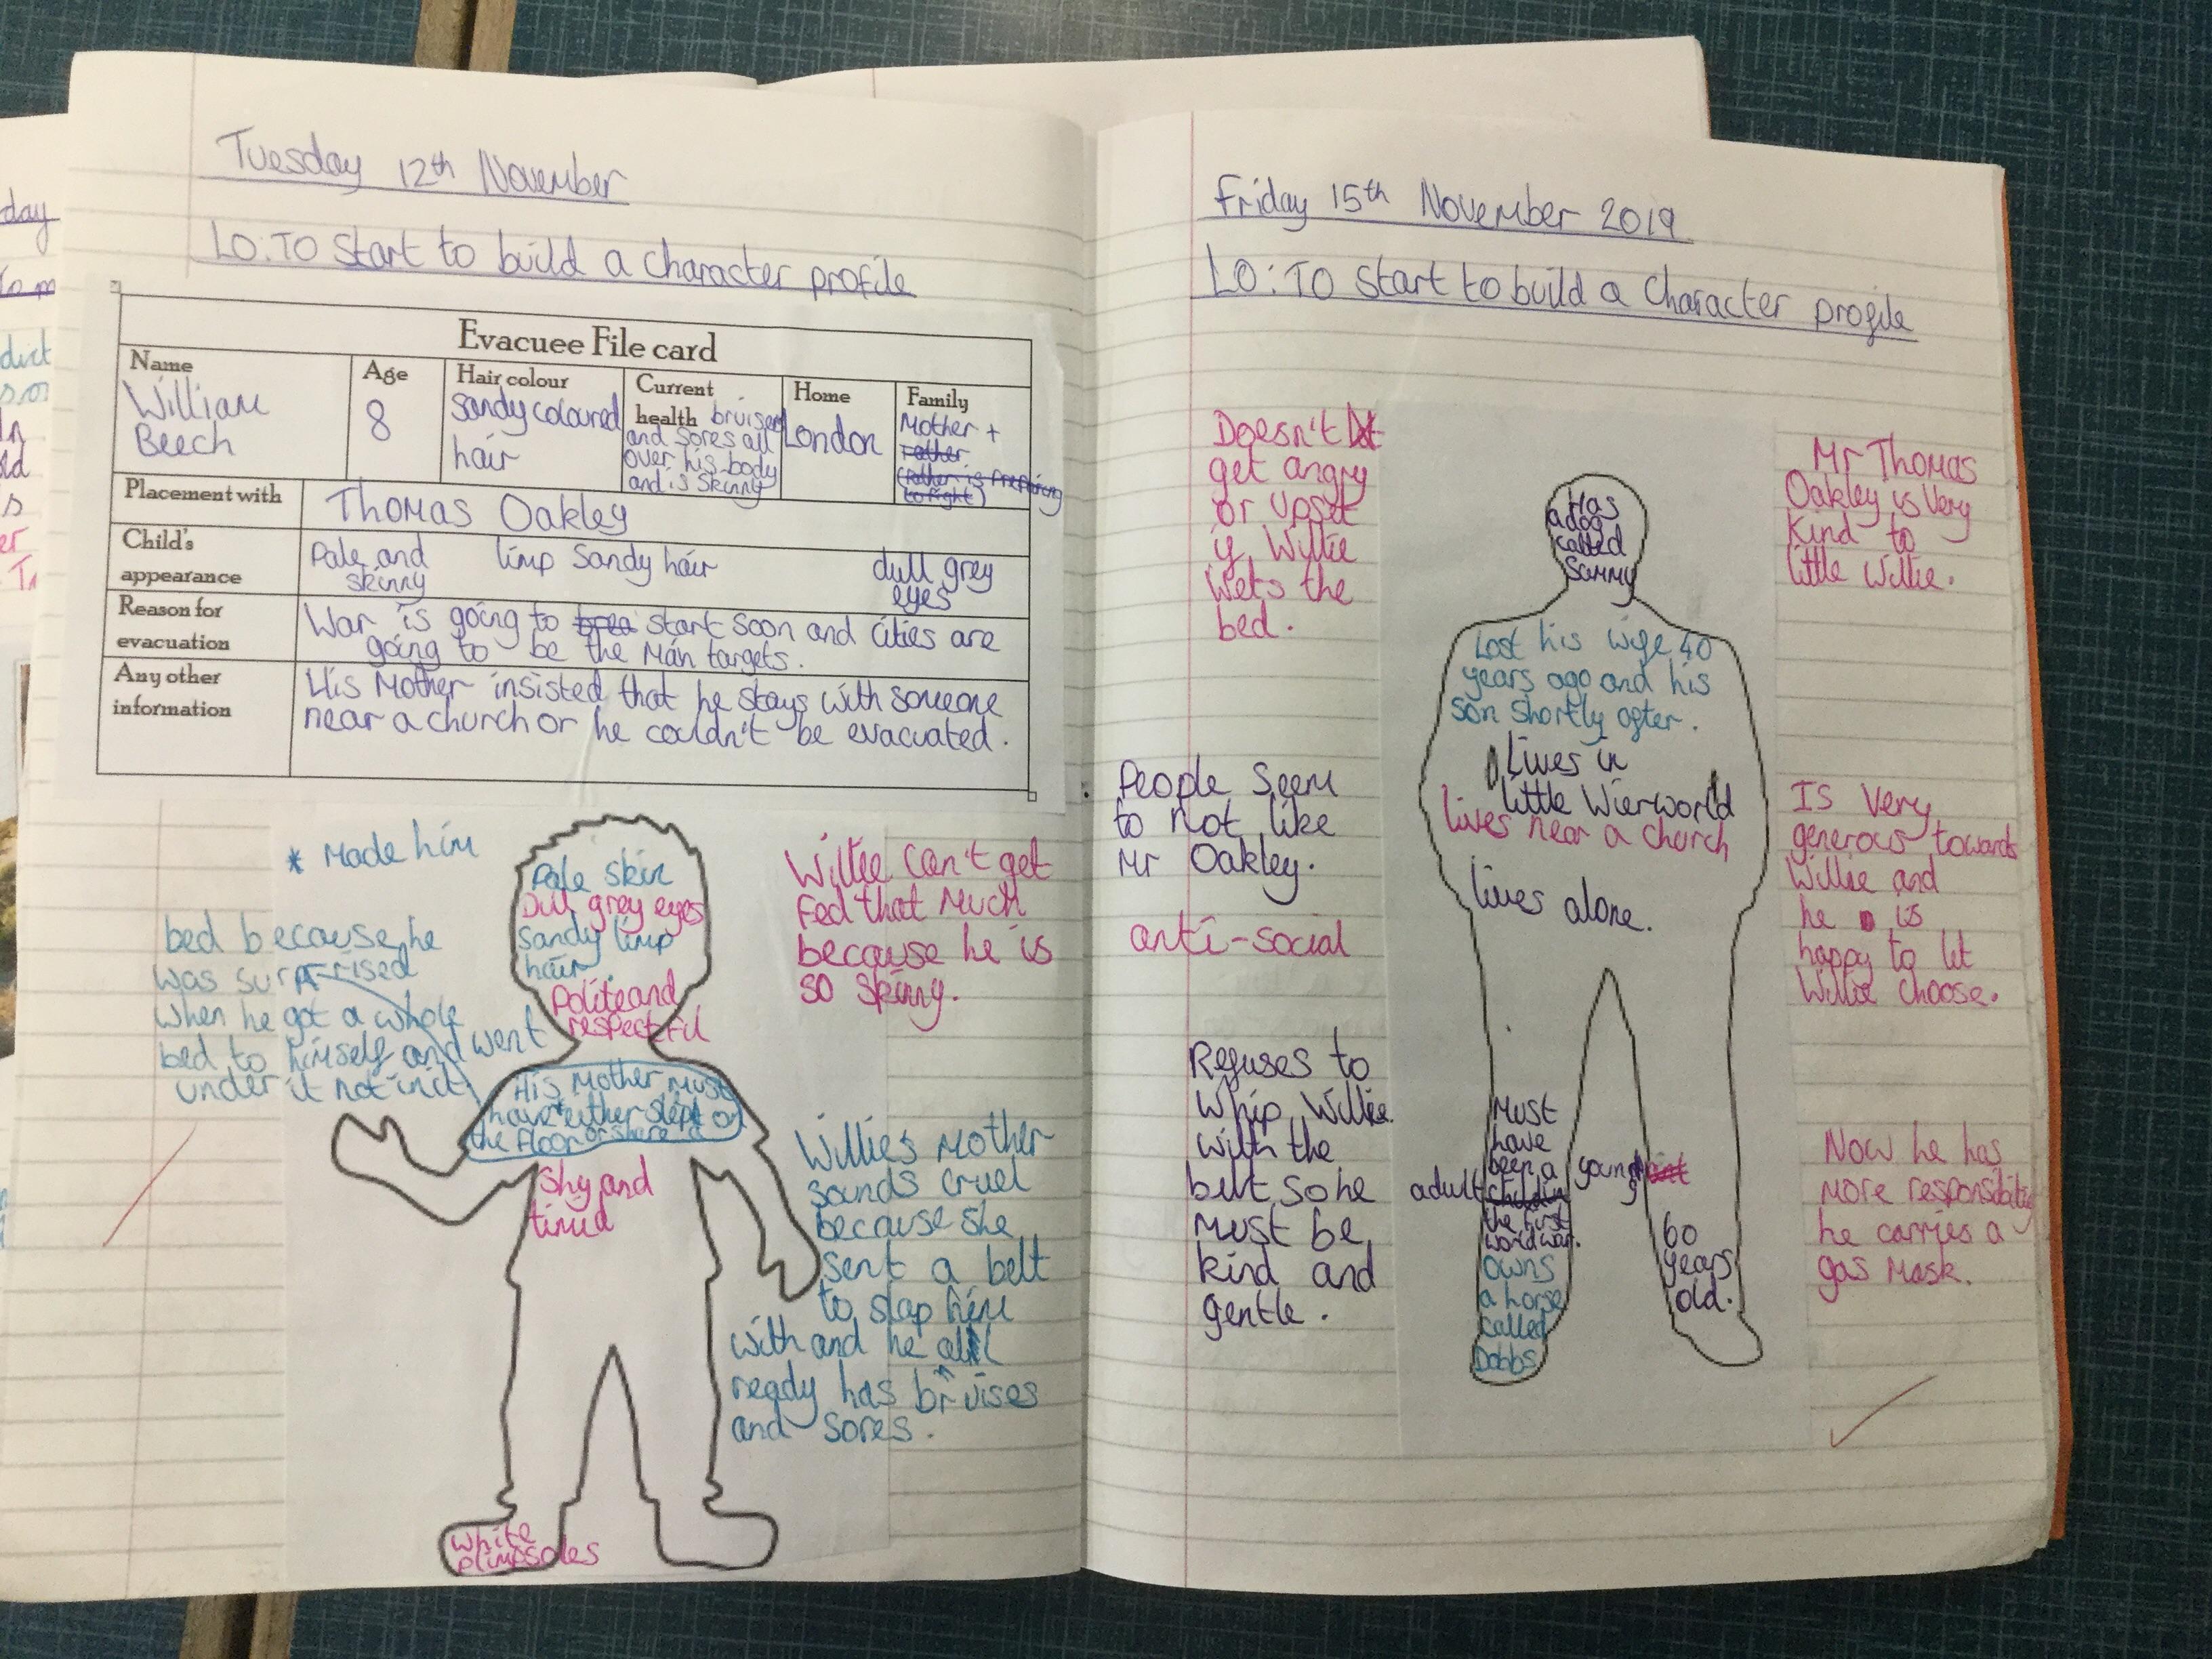 day
duct
Tuesday 12th November
LO: TO Start to build a character profile
Evacuee File card
Name
William
Beech
Age
8
Hair colour
Sandy coloured
hair
Current
health bruises
and sores all
over his body
and is skinny
Home
London
Family
Mother +
father
(father is preparing
to fight)
Placement with
Thomas Oakley
Child's
appearance
Pale and
skinny
limp Sandy hair
dull grey
eyes
Reason for
evacuation
War is going to brea start soon and cities are
going to be the Main targets.
Any other
information
His Mother insisted that he stays with someone
near a church or he couldn't be evacuated.
* Made him
bed because he
was surprised
when he got a whole
bed to himself and went
under it not in it
Pale skin
Dull grey eyes
Sandy limp
hair.
Polite and
respectful
His Mother must
have* either slept on
the floor or share a
Shy and
timid
White
plimpsoles
Willie can't get
fed that much
because he is
so skinny.
Willies Mother
sounds cruel
because she
sent a belt
to slap him
with and he all
ready has bruises
and sores.
Friday 15th November 2019
LO: TO Start to build a Character profile
Doesn't
get angry
or upset
if Willie
Wets the
bed.
People seem
to not like
Mr Oakley.
anti-social
Refuses to
Whip Willie
with the
belt so he
must be
kind and
gentle.
Has
a dog
called
Sammy
Lost his wife 40
years ago and his
son shortly after.
Lives in
little Wierworld
lives near a church
lives alone.
Must
have
been a
young
adult child in
the first
world war.
owns
a horse
called
Dobbs
60
years
old.
Mr Thomas
Oakley is Very
Kind to
little Willie.
Is Very
generous towards
Willie and
he is
happy to let
Willie choose.
Now he has
more responsibility
he carries a
gas mask.